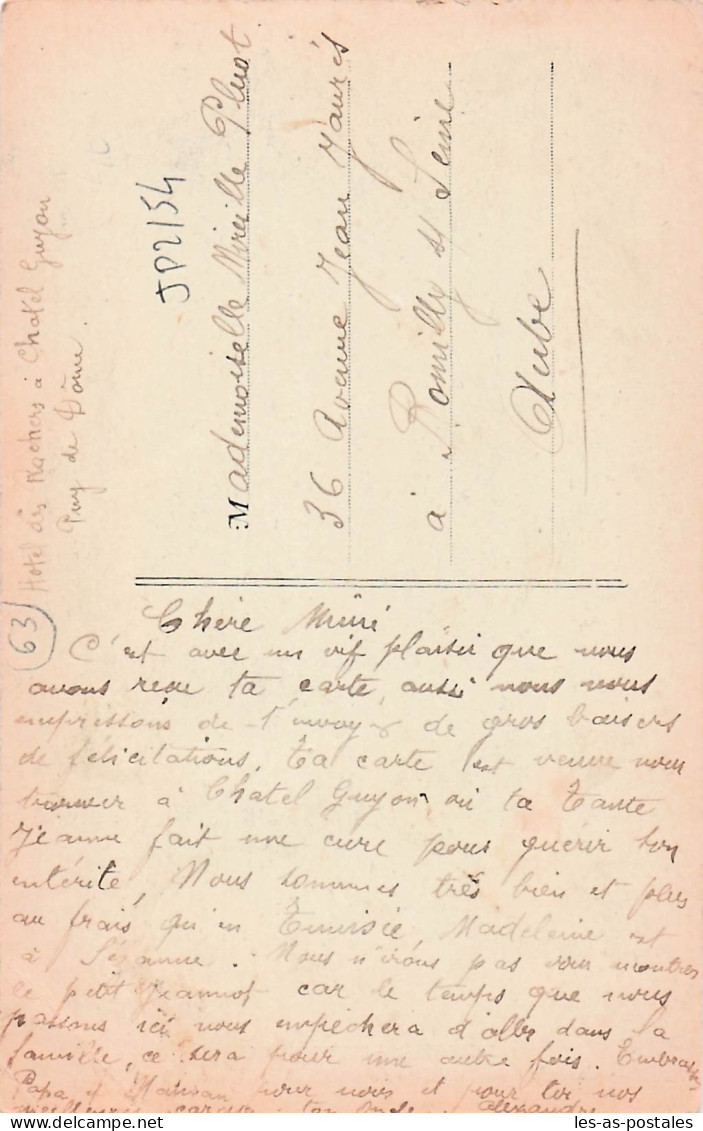 Hotel des Rochers à Chatel Guyon
Puy de Dôme.
JP2/54
Mademoiselle Mireille Pluot
36 Avenue Jean Jaurès
à Romilly s/ Seine
Aube
63
Chère Mimi
C'est avec un vif plaisir que nous
avons reçu ta carte, aussi nous nous
empressons de t'envoyer de gros baisers
de félicitations. Ta carte est venue nous
trouver à Chatel Guyon où ta Tante
Jeanne fait une cure pour guérir son
entérite, Nous sommes très bien et plus
au frais qu'en Tunisie, Madeleine est
à Sézanne. Nous n'irons pas vous montrer
le petit Jeannot car le temps que nous
passons ici nous empêchera d'aller dans la
famille, ce sera pour une autre fois. Embrasse
Papa et Maman pour nous et pour toi nos
meilleures caresses ton Oncle Alexandre
les-as-postales